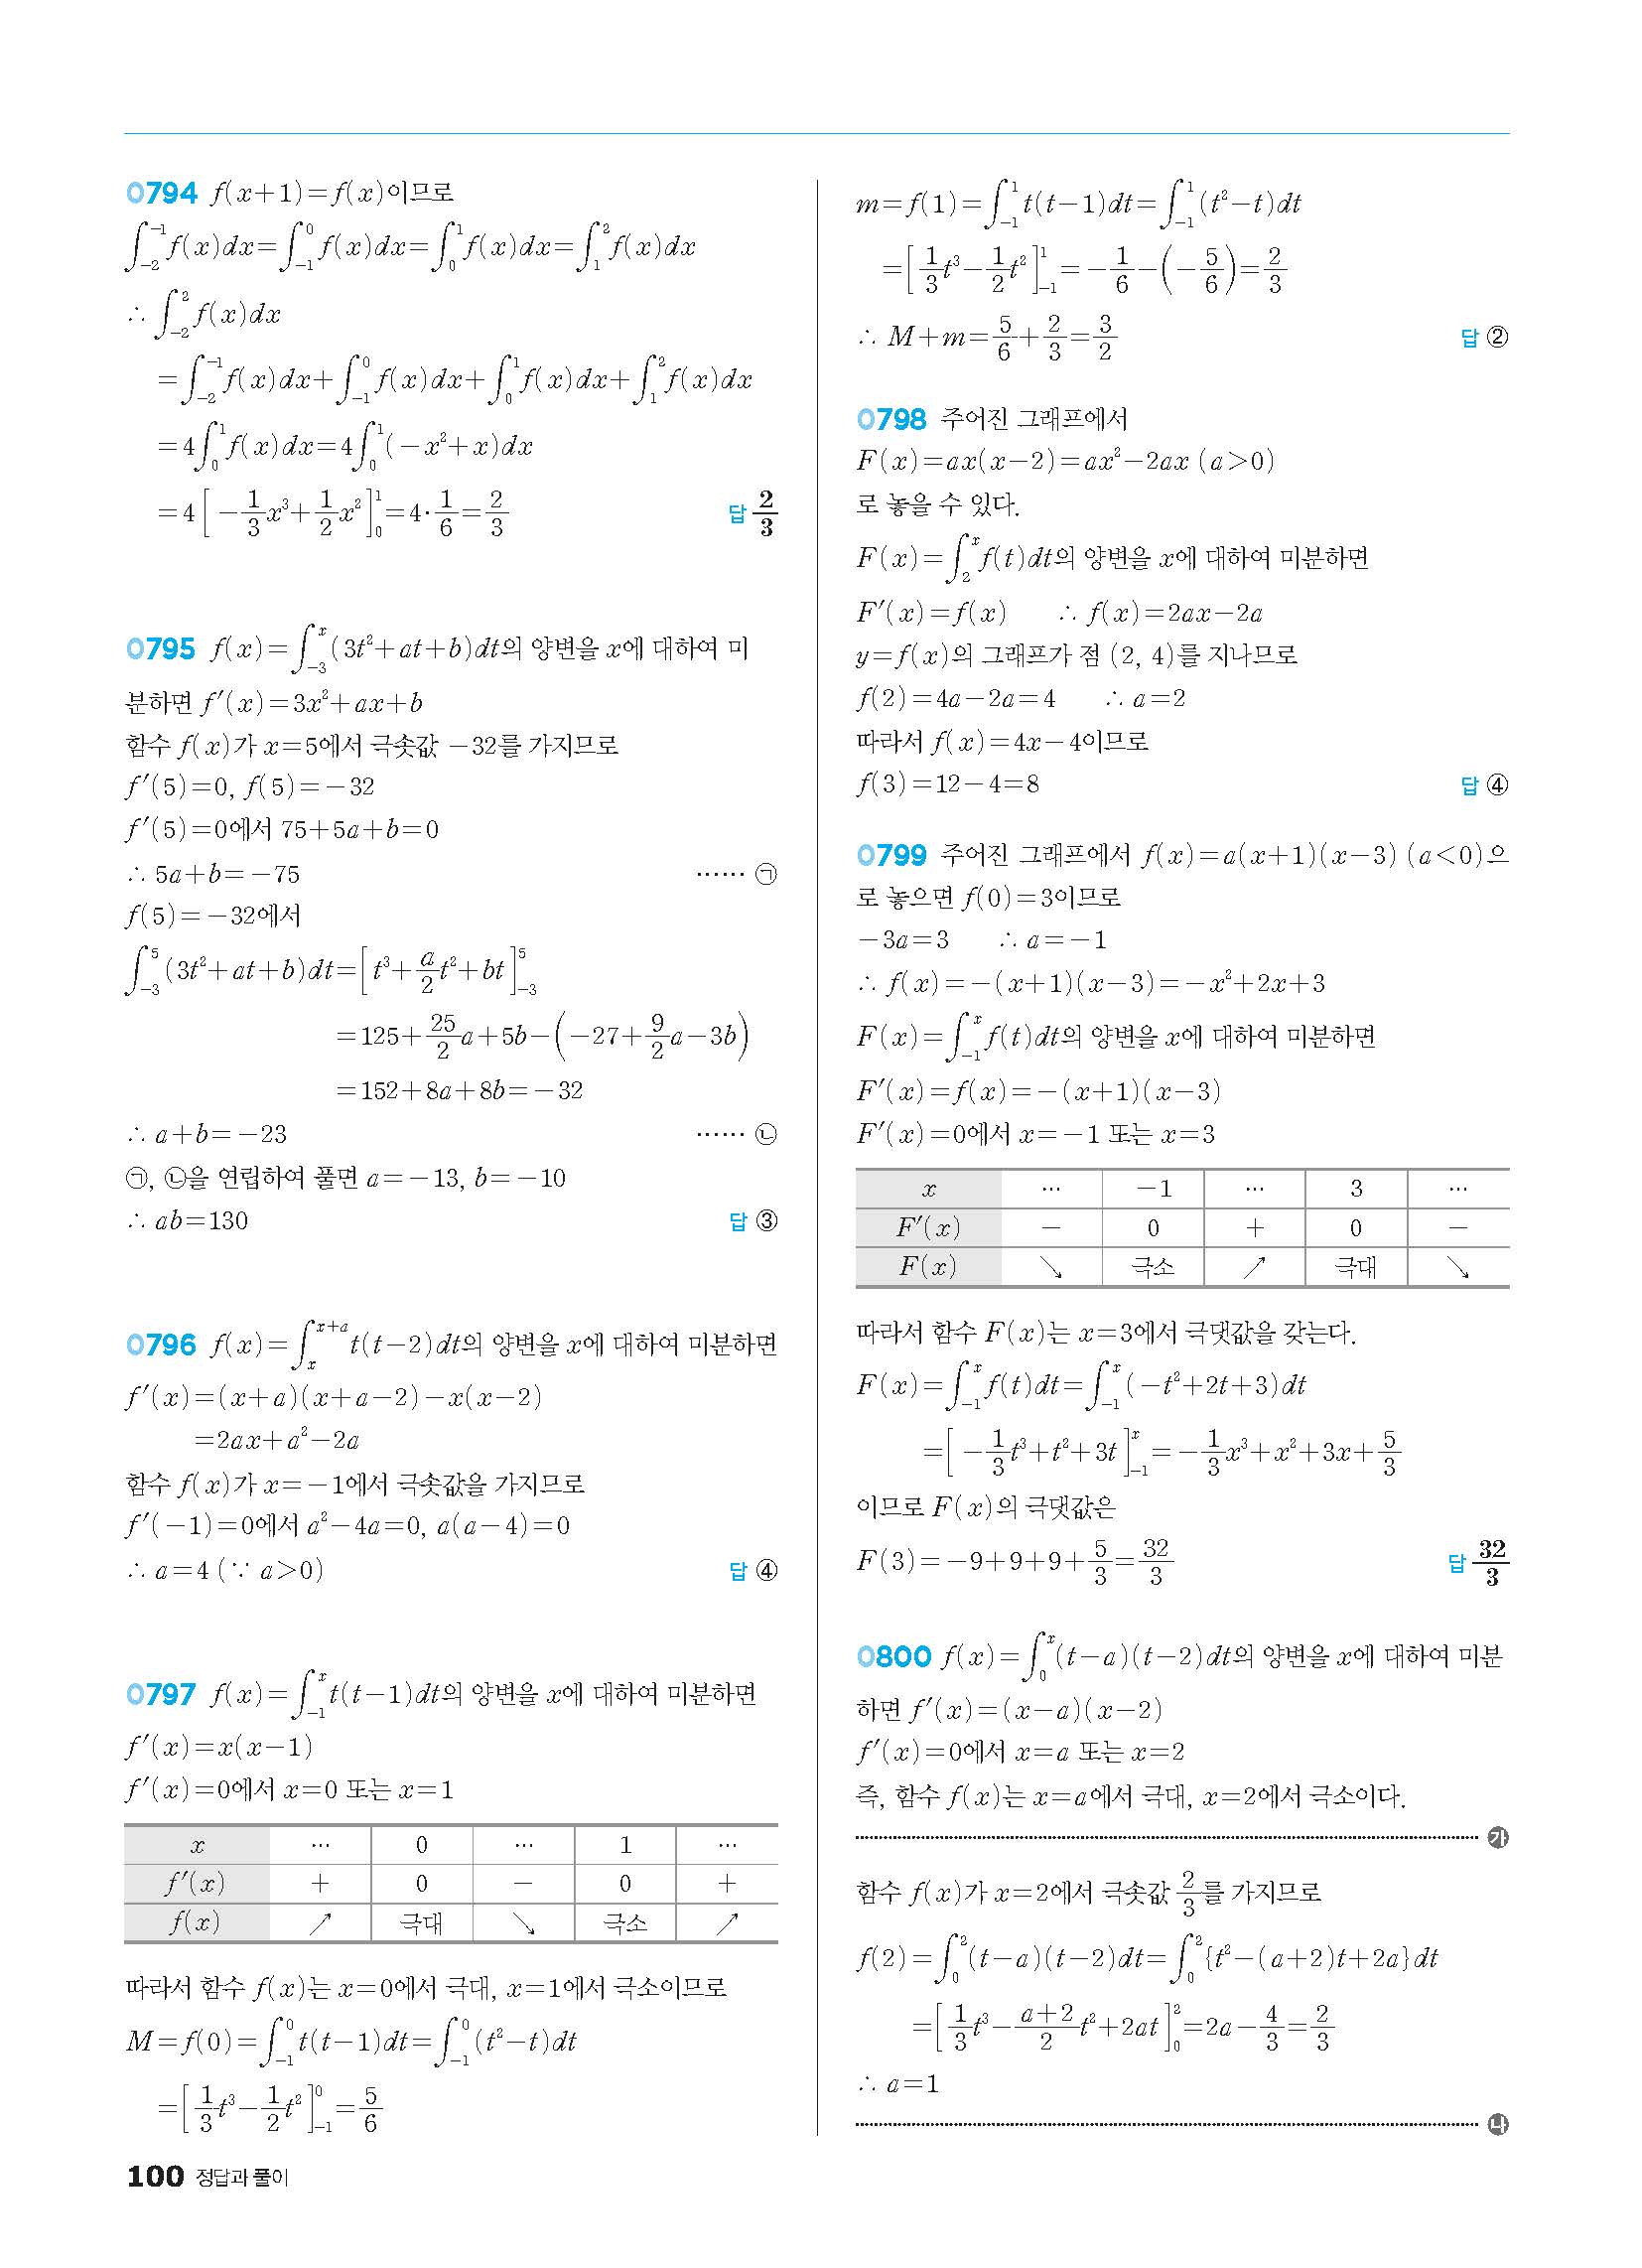 0794 f(x+1)=f(x)이므로
∫_{-2}^{-1} f(x)dx=∫_{-1}^{0} f(x)dx=∫_{0}^{1} f(x)dx=∫_{1}^{2} f(x)dx
∴ ∫_{-2}^{2} f(x)dx
=∫_{-2}^{-1} f(x)dx+∫_{-1}^{0} f(x)dx+∫_{0}^{1} f(x)dx+∫_{1}^{2} f(x)dx
=4∫_{0}^{1} f(x)dx=4∫_{0}^{1} (-x²+x)dx
=4[-1/3 x³+1/2 x²]_{0}^{1}=4·1/6=2/3 답 2/3
0795 f(x)=∫_{-3}^{x} (3t²+at+b)dt의 양변을 x에 대하여 미
분하면 f′(x)=3x²+ax+b
함수 f(x)가 x=5에서 극솟값 -32를 가지므로
f′(5)=0, f(5)=-32
f′(5)=0에서 75+5a+b=0
∴ 5a+b=-75 …… ㉠
f(5)=-32에서
∫_{-3}^{5} (3t²+at+b)dt=[t³+a/2 t²+bt]_{-3}^{5}
=125+25/2 a+5b-(-27+9/2 a-3b)
=152+8a+8b=-32
∴ a+b=-23 …… ㉡
㉠, ㉡을 연립하여 풀면 a=-13, b=-10
∴ ab=130 답 ③
0796 f(x)=∫_{x}^{x+a} t(t-2)dt의 양변을 x에 대하여 미분하면
f′(x)=(x+a)(x+a-2)-x(x-2)
=2ax+a²-2a
함수 f(x)가 x=-1에서 극솟값을 가지므로
f′(-1)=0에서 a²-4a=0, a(a-4)=0
∴ a=4 (∵ a>0) 답 ④
0797 f(x)=∫_{-1}^{x} t(t-1)dt의 양변을 x에 대하여 미분하면
f′(x)=x(x-1)
f′(x)=0에서 x=0 또는 x=1
x … 0 … 1 …
f′(x) + 0 - 0 +
f(x) ↗ 극대 ↘ 극소 ↗
따라서 함수 f(x)는 x=0에서 극대, x=1에서 극소이므로
M=f(0)=∫_{-1}^{0} t(t-1)dt=∫_{-1}^{0} (t²-t)dt
=[1/3 t³-1/2 t²]_{-1}^{0}=5/6
100 정답과 풀이
m=f(1)=∫_{-1}^{1} t(t-1)dt=∫_{-1}^{1} (t²-t)dt
=[1/3 t³-1/2 t²]_{-1}^{1}=-1/6-(-5/6)=2/3
∴ M+m=5/6+2/3=3/2 답 ②
0798 주어진 그래프에서
F(x)=ax(x-2)=ax²-2ax (a>0)
로 놓을 수 있다.
F(x)=∫_{2}^{x} f(t)dt의 양변을 x에 대하여 미분하면
F′(x)=f(x) ∴ f(x)=2ax-2a
y=f(x)의 그래프가 점 (2, 4)를 지나므로
f(2)=4a-2a=4 ∴ a=2
따라서 f(x)=4x-4이므로
f(3)=12-4=8 답 ④
0799 주어진 그래프에서 f(x)=a(x+1)(x-3) (a<0)으
로 놓으면 f(0)=3이므로
-3a=3 ∴ a=-1
∴ f(x)=-(x+1)(x-3)=-x²+2x+3
F(x)=∫_{-1}^{x} f(t)dt의 양변을 x에 대하여 미분하면
F′(x)=f(x)=-(x+1)(x-3)
F′(x)=0에서 x=-1 또는 x=3
x … -1 … 3 …
F′(x) - 0 + 0 -
F(x) ↘ 극소 ↗ 극대 ↘
따라서 함수 F(x)는 x=3에서 극댓값을 갖는다.
F(x)=∫_{-1}^{x} f(t)dt=∫_{-1}^{x} (-t²+2t+3)dt
=[-1/3 t³+t²+3t]_{-1}^{x}=-1/3 x³+x²+3x+5/3
이므로 F(x)의 극댓값은
F(3)=-9+9+9+5/3=32/3 답 32/3
0800 f(x)=∫_{0}^{x} (t-a)(t-2)dt의 양변을 x에 대하여 미분
하면 f′(x)=(x-a)(x-2)
f′(x)=0에서 x=a 또는 x=2
즉, 함수 f(x)는 x=a에서 극대, x=2에서 극소이다.
가
함수 f(x)가 x=2에서 극솟값 2/3를 가지므로
f(2)=∫_{0}^{2} (t-a)(t-2)dt=∫_{0}^{2} {t²-(a+2)t+2a}dt
=[1/3 t³-(a+2)/2 t²+2at]_{0}^{2}=2a-4/3=2/3
∴ a=1
나